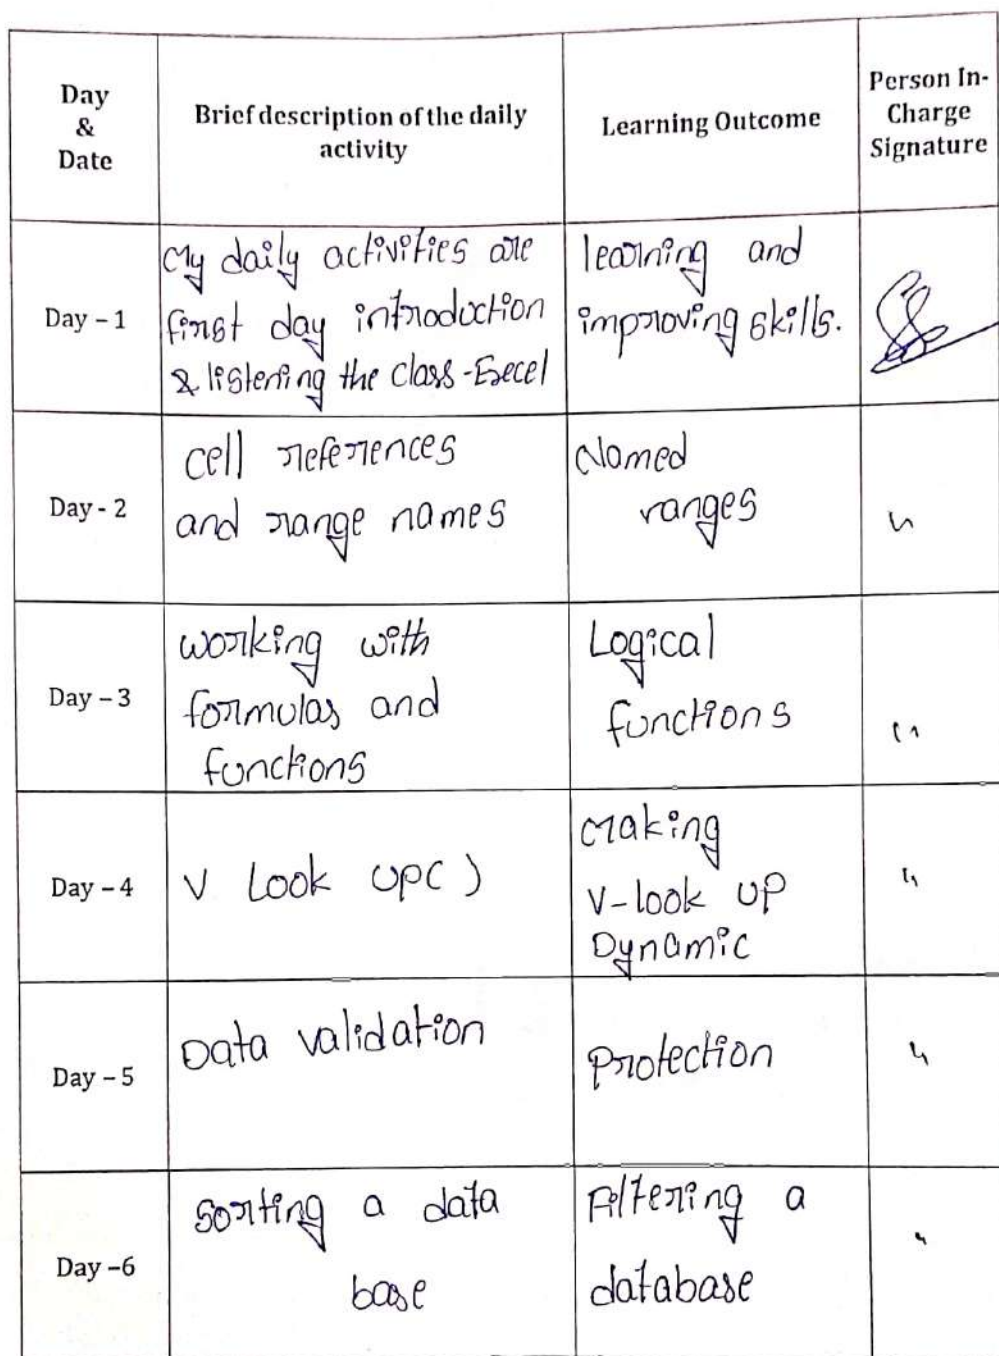 Day
&
Date
Brief description of the daily
activity
Learning Outcome
Person In-
Charge
Signature
Day – 1
My daily activities are
first day introduction
& listening the class - Excel
learning and
improving skills.
Day - 2
cell references
and range names
Named
ranges
"
Day – 3
working with
formulas and
functions
Logical
functions
"
Day – 4
V Look up( )
Making
V-look up
Dynamic
"
Day – 5
Data validation
Protection
"
Day –6
Sorting a data
base
Filtering a
database
"